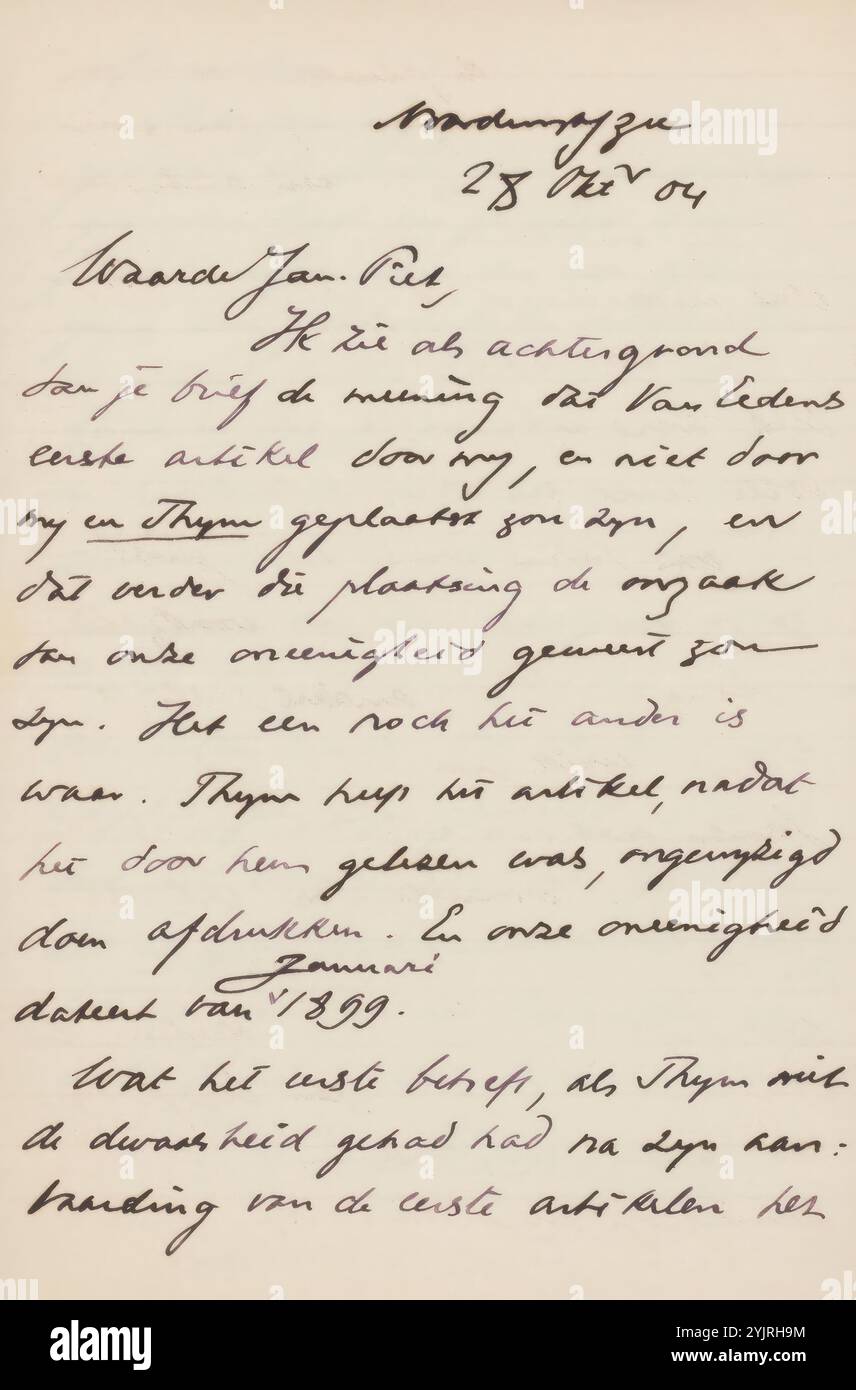 Noordwijk a/zee
28 Okt 04
Waarde Jan-Piet,
Ik zie als achtergrond
van je brief de meening dat Van Eedens
eerste artikel door my, en niet door
my en Thym geplaatst zou zyn, en
dat verder die plaatsing de oorzaak
van onze oneenigheid geweest zou
zyn. Het een noch het ander is
waar. Thym heeft het artikel, nadat
het door hem gelezen was, ongewyzigd
doen afdrukken. En onze oneenigheid
Januari
dateert van 1899.
Wat het eerste betreft, als Thym niet
de dwaasheid gehad had na zyn aan-
vaarding van de eerste artikelen het
alamy
Image ID: 2YJRH9M
www.alamy.com